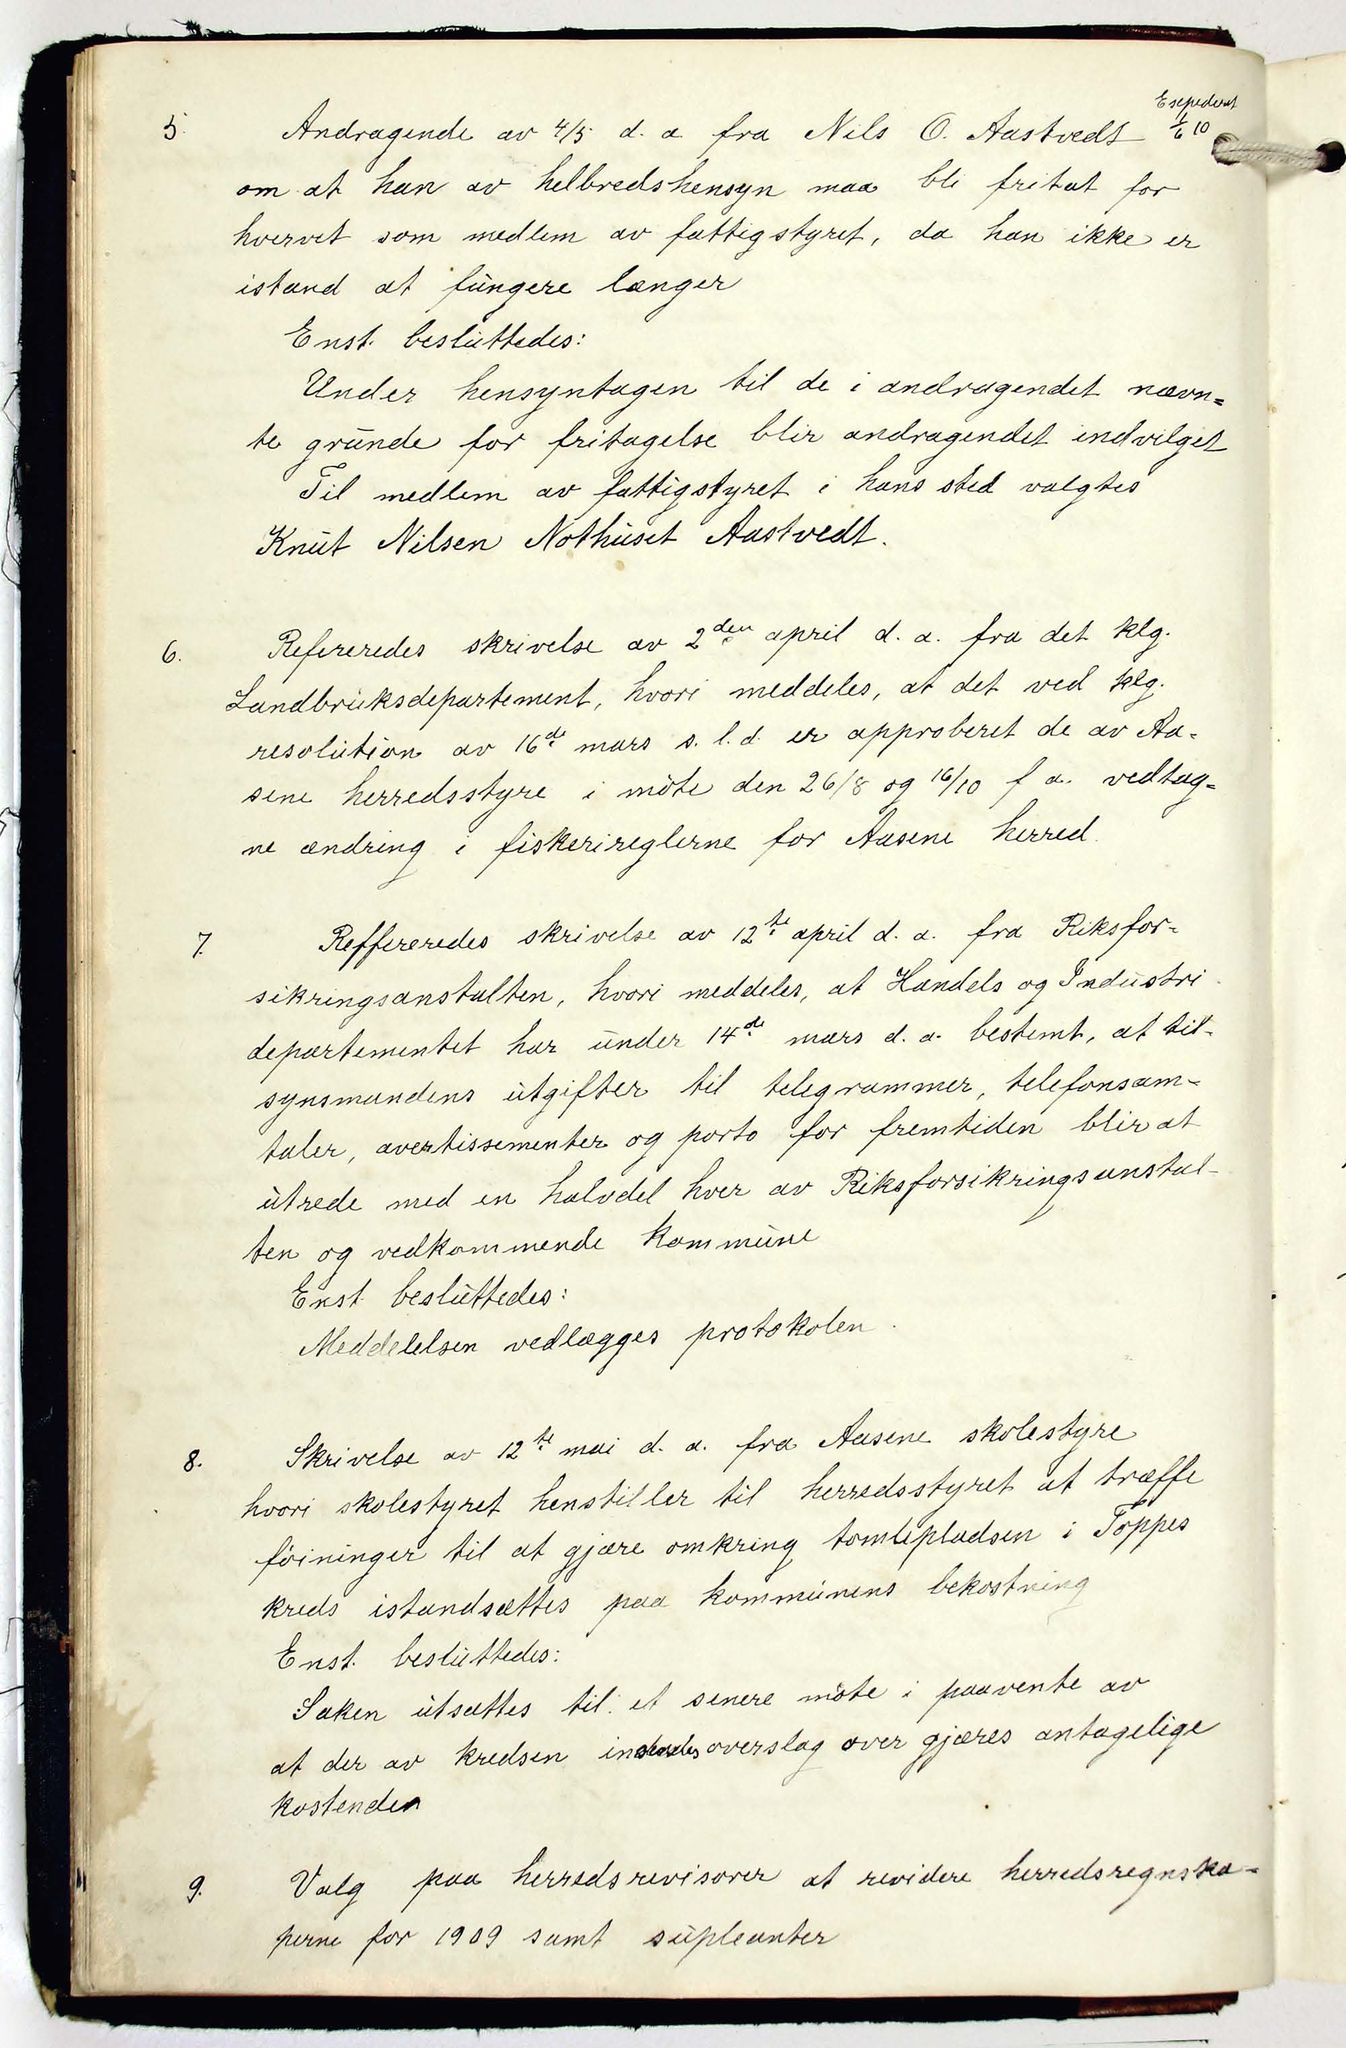 Expederet
1/6 10
5. Andragende av 4/5 d. a fra Nils O. Aastvedt
om at han av helbredshensyn maa bli fritat for
hvervet som medlem av fattigstyret, da han ikke er
istand at fungere længer
Enst. besluttedes:
Under hensyntagen til de i andragendet nævn=
te grunde for fritagelse blir andragendet indvilget
Til medlem av fattigstyret i hans sted valgtes
Knut Nilsen Nothuset Aastvedt.
6. Refereredes skrivelse av 2den april d. a. fra det klg.
Landbruksdepartement, hvori meddeles, at det ved klg.
resolution av 16de mars s. l. d. er approberet de av Aa=
sene herredsstyre i møte den 26/8 og 16/10 f a. vedtag=
ne ændring i fiskerireglerne for Aasene herred.
7. Reffereredes skrivelse av 12te april d. a. fra Riksfor=
sikringsanstalten, hvori meddeles, at Handels og Industri
departementet har under 14de mars d. a. bestemt, at til-
synsmandens utgifter til telegrammer, telefonsam-
taler, avertissementer og porto for fremtiden blir at
utrede med en halvdel hver av Riksforsikringsanstal-
ten og vedkommende kommune
Enst. besluttedes:
Meddelelsen vedlægges protokolen.
8. Skrivelse av 12te mai d. a. fra Aasene skolestyre
hvori skolestyret henstiller til herredsstyret at træffe
föininger til at gjære omkring tomtepladsen i Toppes
kreds istandsættes paa kommunens bekostning
Enst. besluttedes:
Saken utsættes til et senere møte i paavente av
at der av kredsen indsendes overslag over gjæres antagelige
kostender
9. Valg paa herredsrevisorer at revidere herredsregnska=
perne for 1909 samt supleanter